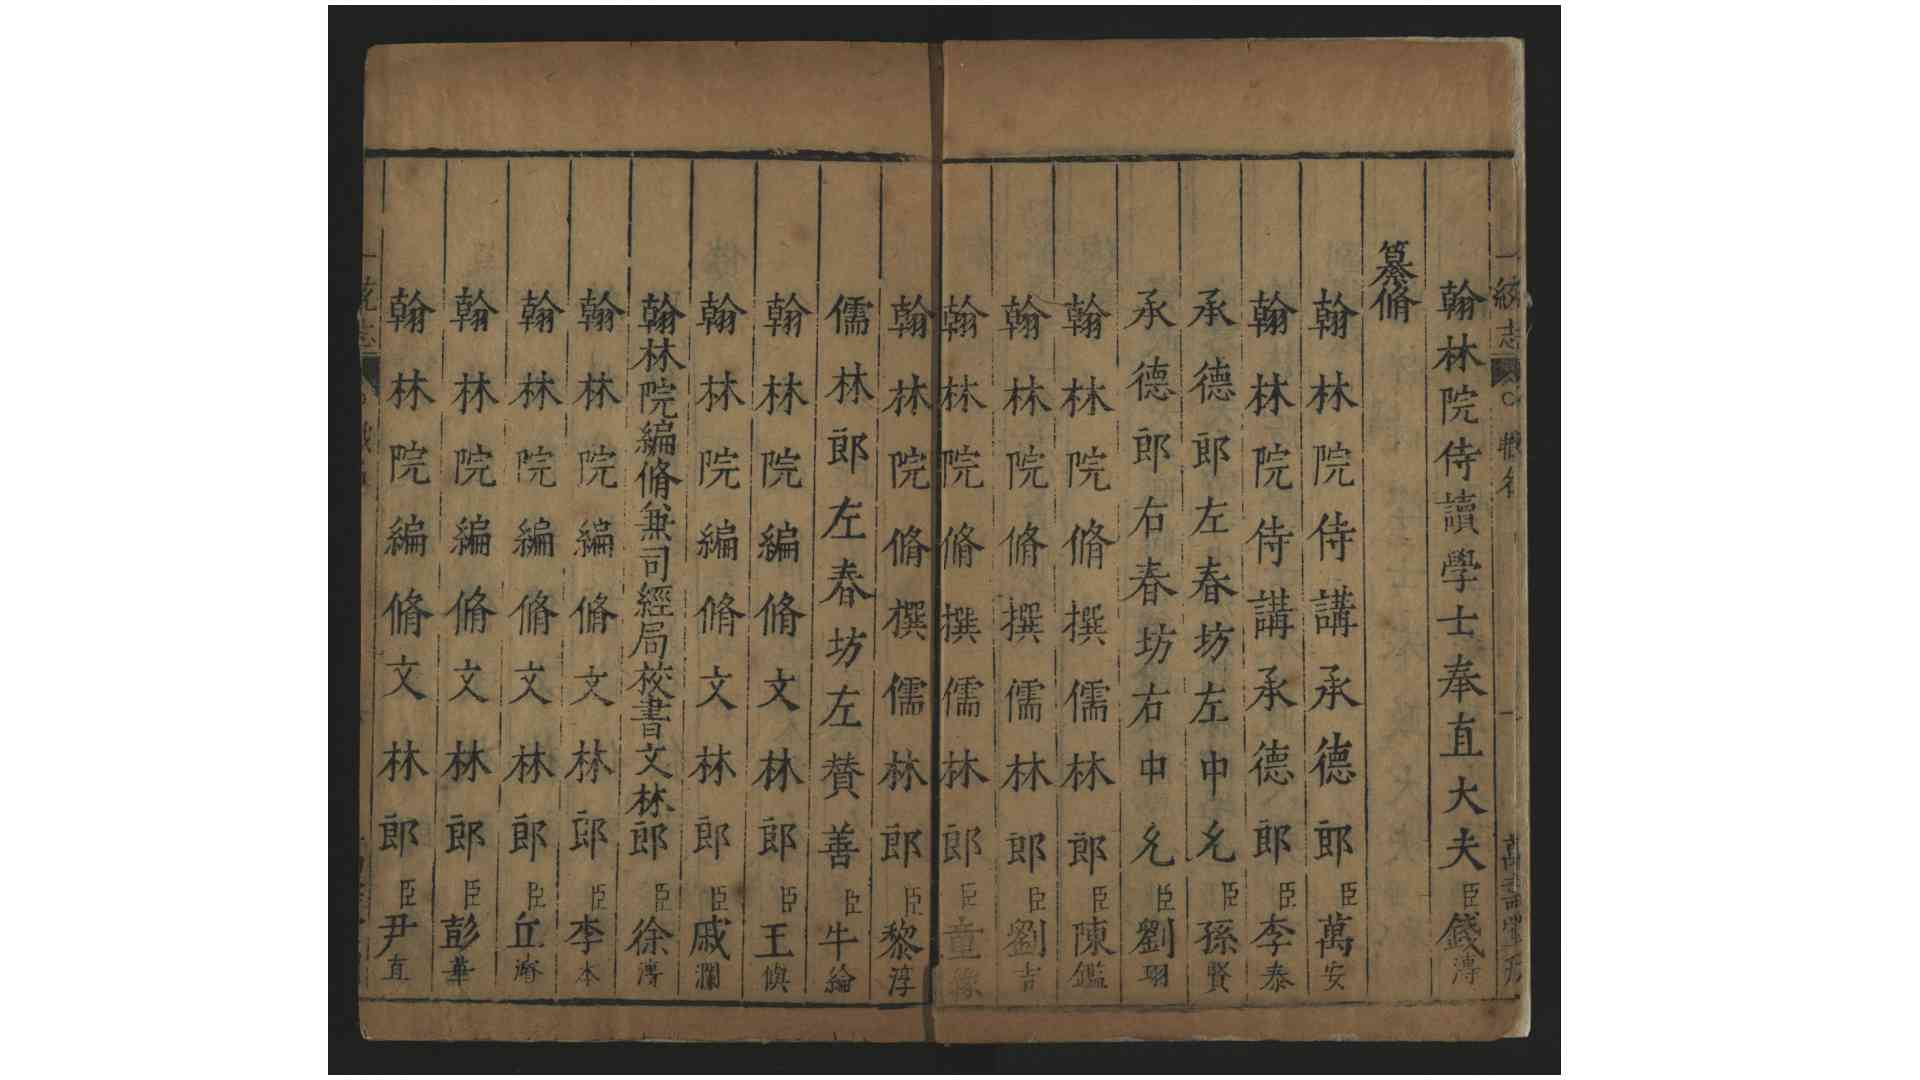 一統志 職名 一 萬壽堂刊
翰林院侍讀學士奉直大夫臣錢溥
纂脩
翰林院侍講承德郎臣萬安
翰林院侍講承德郎臣李泰
承德郎左春坊左中允臣孫賢
承德郎右春坊右中允臣劉珝
翰林院脩撰儒林郎臣陳鑑
翰林院脩撰儒林郎臣劉吉
翰林院脩撰儒林郎臣童緣
翰林院脩撰儒林郎臣黎淳
儒林郎左春坊左賛善臣牛綸
翰林院編脩文林郎臣王㒜
翰林院編脩文林郎臣戚瀾
翰林院編脩兼司經局挍書文林郎臣徐溥
翰林院編脩文林郎臣李本
翰林院編脩文林郎臣丘濬
翰林院編脩文林郎臣彭華
翰林院編脩文林郎臣尹直
一統志